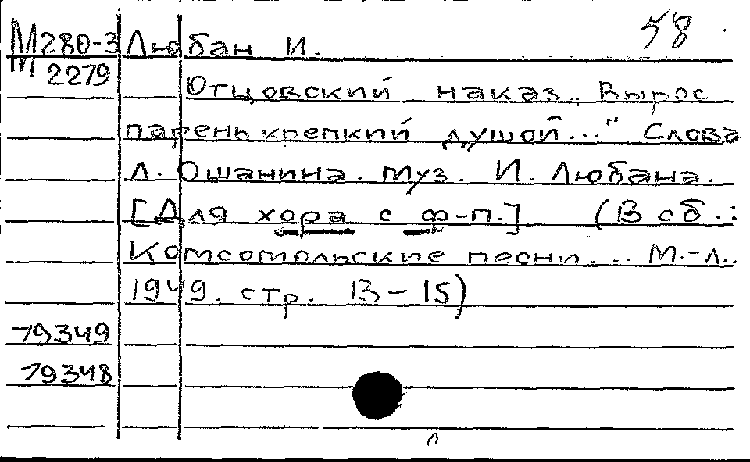 58
М280-3 Любан И.
М 2279
Отцовский наказ. "Вырос
парень крепкий душой..." Слова
Л. Ошанина. Муз. И. Любана.
[Для хора с ф-п.] (В сб.:
Комсомольские песни... М.-Л.
1949. стр. 13-15)
79349
79348